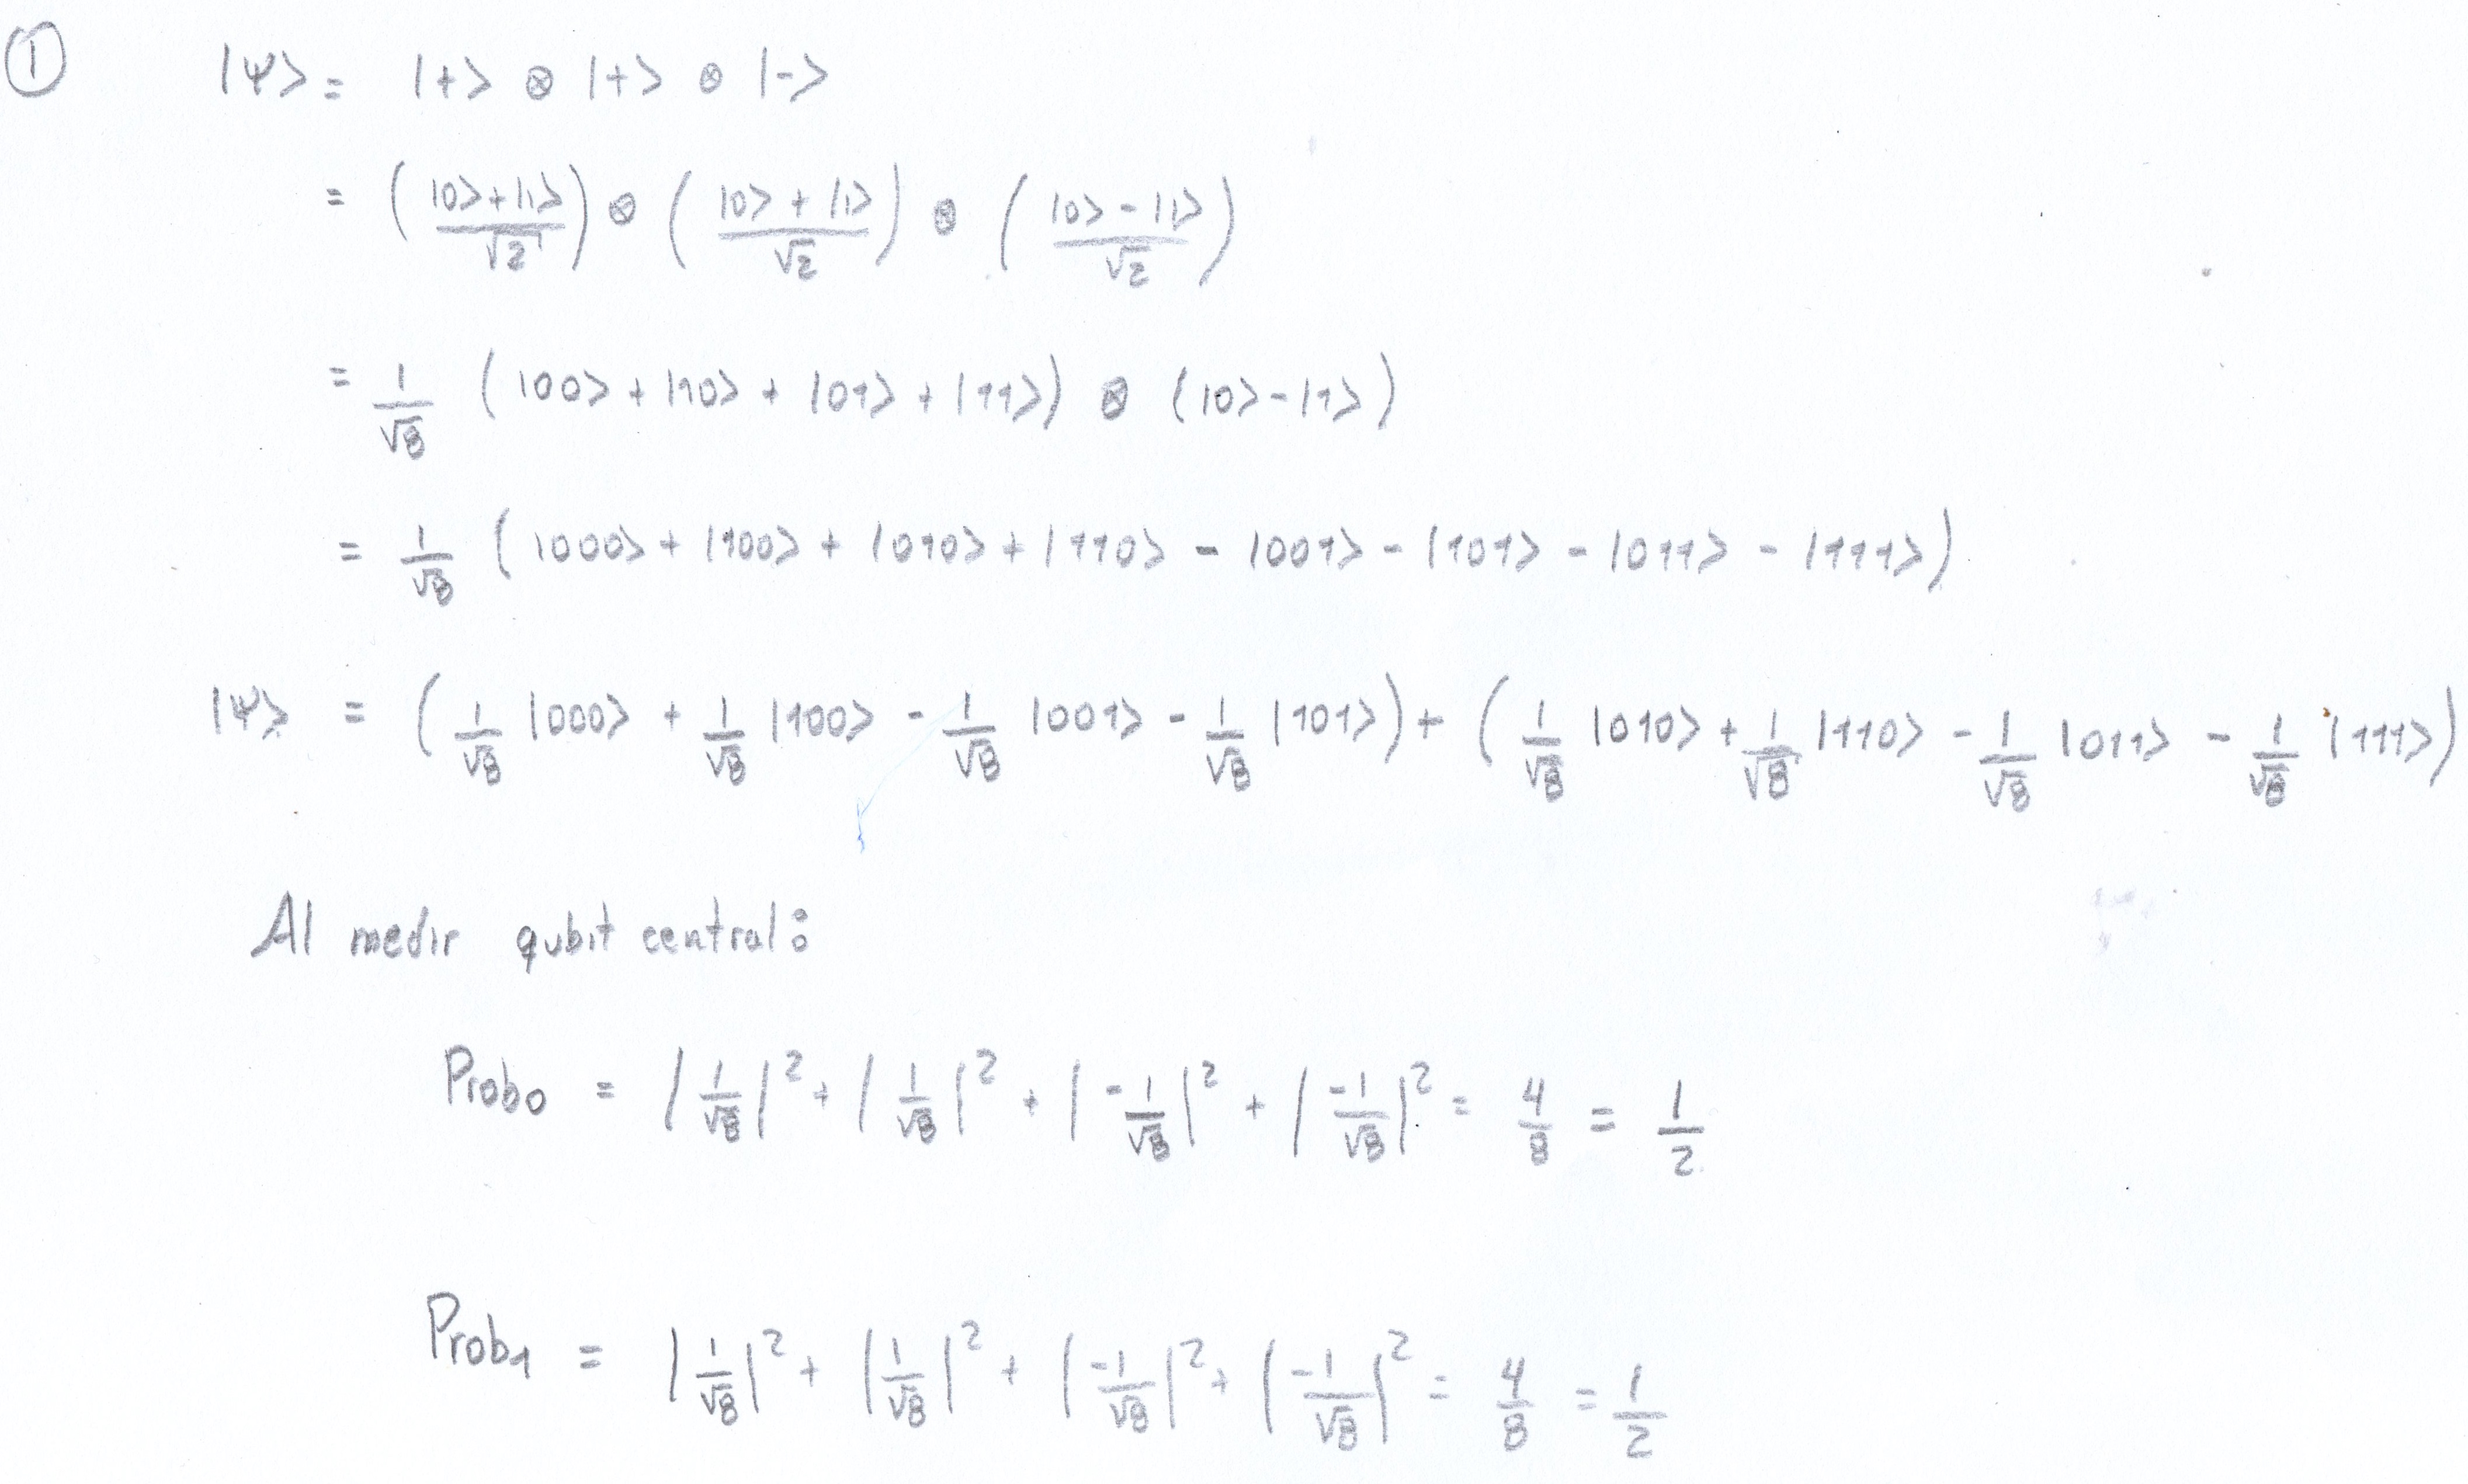 ①  |Ψ> = |+> ⊗ |+> ⊗ |->
= ( (|0>+|1>)/√2 ) ⊗ ( (|0> + |1>)/√2 ) ⊗ ( (|0> - |1>)/√2 )
= 1/√8 ( |00> + |10> + |01> + |11> ) ⊗ ( |0> - |1> )
= 1/√8 ( |000> + |100> + |010> + |110> - |001> - |101> - |011> - |111> )
|Ψ> = ( 1/√8 |000> + 1/√8 |100> - 1/√8 |001> - 1/√8 |101> ) + ( 1/√8 |010> + 1/√8 |110> - 1/√8 |011> - 1/√8 |111> )
Al medir qubit central:
Prob₀ = |1/√8|² + |1/√8|² + |-1/√8|² + |-1/√8|² = 4/8 = 1/2
Prob₁ = |1/√8|² + |1/√8|² + |-1/√8|² + |-1/√8|² = 4/8 = 1/2